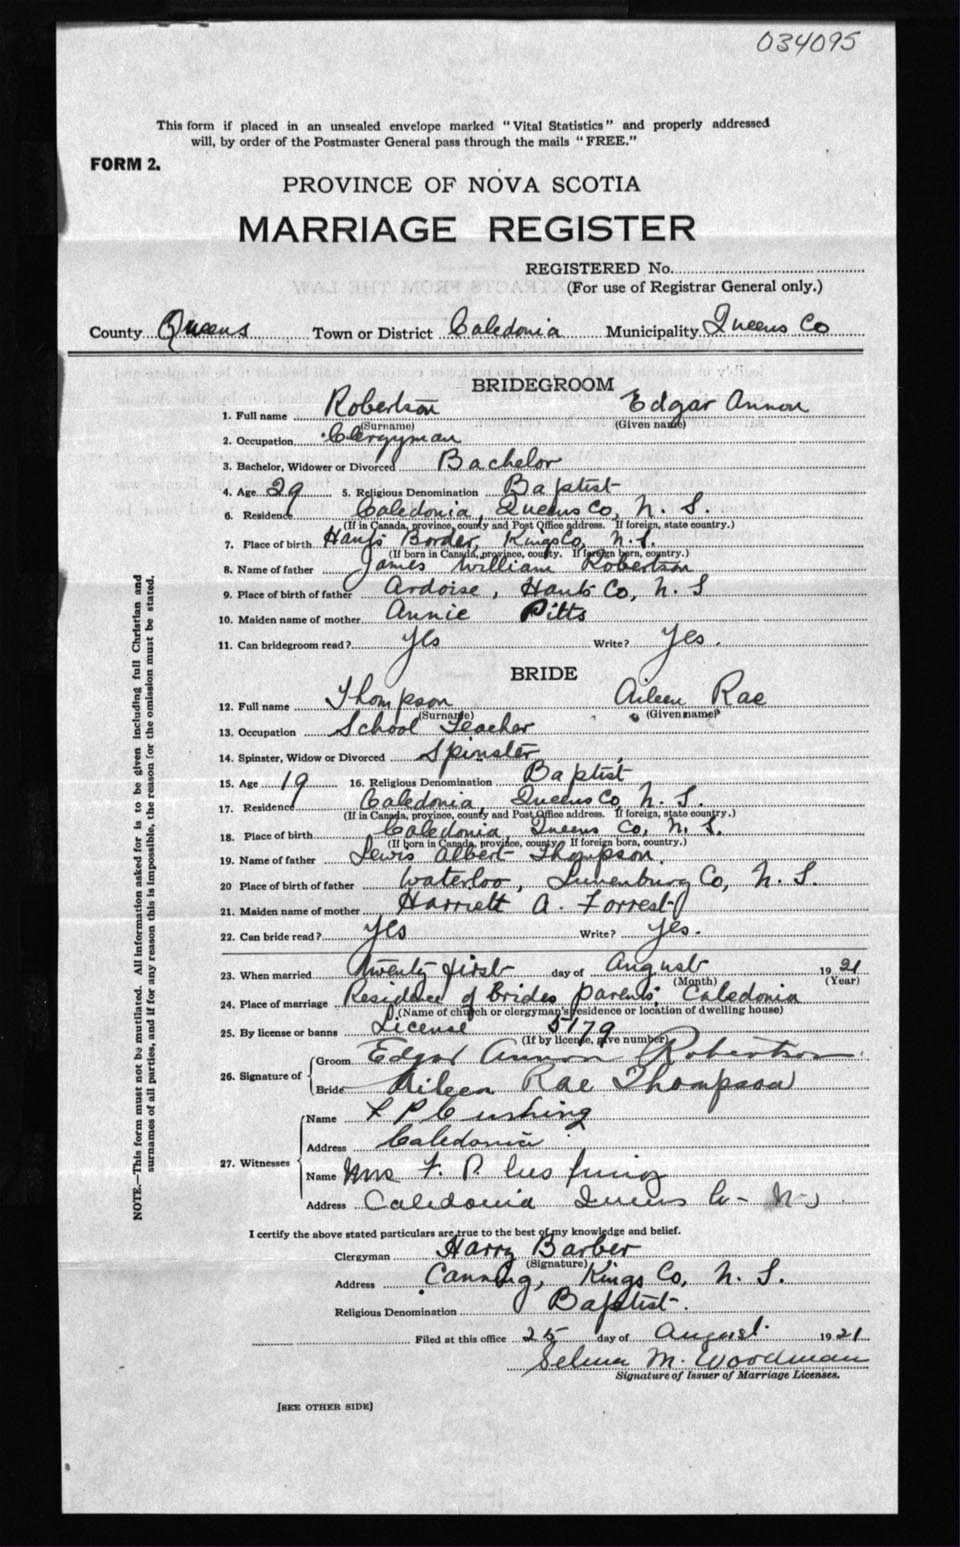 034095
This form if placed in an unsealed envelope marked "Vital Statistics" and properly addressed
will, by order of the Postmaster General pass through the mails "FREE."
FORM 2.
PROVINCE OF NOVA SCOTIA
MARRIAGE REGISTER
REGISTERED No.
(For use of Registrar General only.)
County Queens Town or District Caledonia Municipality Queens Co
BRIDEGROOM
1. Full name Robertson Edgar Annon
(Surname) (Given name)
2. Occupation Clergyman
3. Bachelor, Widower or Divorced Bachelor
4. Age 29 5. Religious Denomination Baptist
6. Residence Caledonia, Queens Co, N. S.
(If in Canada, province, county and Post Office address. If foreign, state country.)
7. Place of birth Hants Border, Kings Co, N. S.
(If born in Canada, province, county. If foreign born, country.)
8. Name of father James William Robertson
9. Place of birth of father Ardoise, Hants Co, N. S
10. Maiden name of mother Annie Pitts
11. Can bridegroom read? Yes Write? Yes.
BRIDE
12. Full name Thompson Aileen Rae
(Surname) (Given name)
13. Occupation School Teacher
14. Spinster, Widow or Divorced Spinster
15. Age 19 16. Religious Denomination Baptist
17. Residence Caledonia, Queens Co, N. S.
(If in Canada, province, county and Post Office address. If foreign, state country.)
18. Place of birth Caledonia, Queens Co, N. S.
(If born in Canada, province, county. If foreign born, country.)
19. Name of father Lewis Albert Thompson.
20 Place of birth of father Waterloo, Lunenburg Co, N. S.
21. Maiden name of mother Harriett A. Forrest
22. Can bride read? Yes Write? Yes.
23. When married Twenty first day of August 1921
(Month) (Year)
24. Place of marriage Residence of Brides parents, Caledonia
(Name of church or clergyman's residence or location of dwelling house)
25. By license or banns License 5179
(If by license, give number)
26. Signature of
Groom Edgar Annon Robertson
Bride Aileen Rae Thompson
27. Witnesses
Name F P Cushing
Address Caledonia
Name Mrs F. P. Cushing
Address Caledonia Queens Co - N-S
I certify the above stated particulars are true to the best of my knowledge and belief.
Clergyman Harry Barber
(Signature)
Address Canning, Kings Co, N. S.
Religious Denomination Baptist.
Filed at this office 25 day of August. 1921
Selma M. Woodman
Signature of Issuer of Marriage Licenses.
[SEE OTHER SIDE]
NOTE.—This form must not be mutilated. All information asked for is to be given including full Christian and
surnames of all parties, and if for any reason this is impossible, the reason for the omission must be stated.